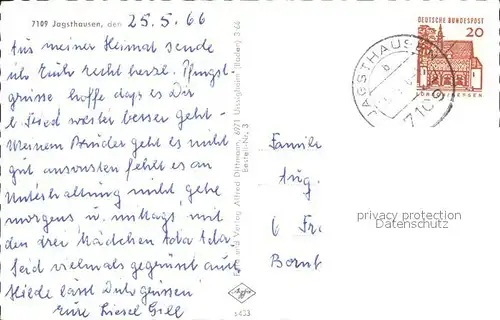 7109 Jagsthausen, den 25.5.66
Aus meiner Heimat sende
ich Euch recht herzl. Pfingst-
grüsse hoffe dass es Dir
b. Fried weiter besser geht
Meinem Bruder geht es nicht
gut ansonsten fehlt es an
Unterhaltung nicht gehe
morgens u. mittags mit
den drei Mädchen Ada Ada
Seid vielmals gegrüsst auch
Hilde lässt Dich grüssen
Eure Liesel Gell
Foto und Verlag Alfred Dittmann, 6971 Uissigheim (Baden) 3 66
Bestell-Nr. 3
6433
DEUTSCHE BUNDESPOST
20
LORSCH/HESSEN
JAGSTHAUSEN
b
7109
Familie
Aug.
6 Fr.
Bornt
privacy protection
Datenschutz